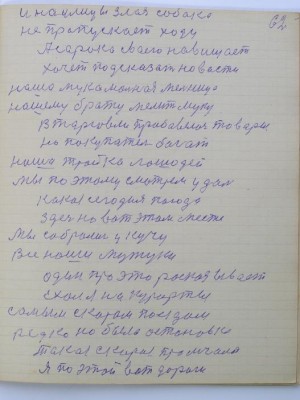 62
И на улицы злая собака
не пропускает ходу
А сарока своего навищает
хочет подсказат новости
наша мукамолная мелница
нашему брату мелт муку
В тарговли прибавилис товары
но покупател богат
наши тройка лошодей
мы по этому смотрем удал
какая сегодня погода
здес но вот этом месте
мы собрались у кучу
Все наши мужуки
один про это расказывает
ехал на курорты
самым скорам поездом
редко но была остановка
такая скорас промчала
Я по этой вот дороги